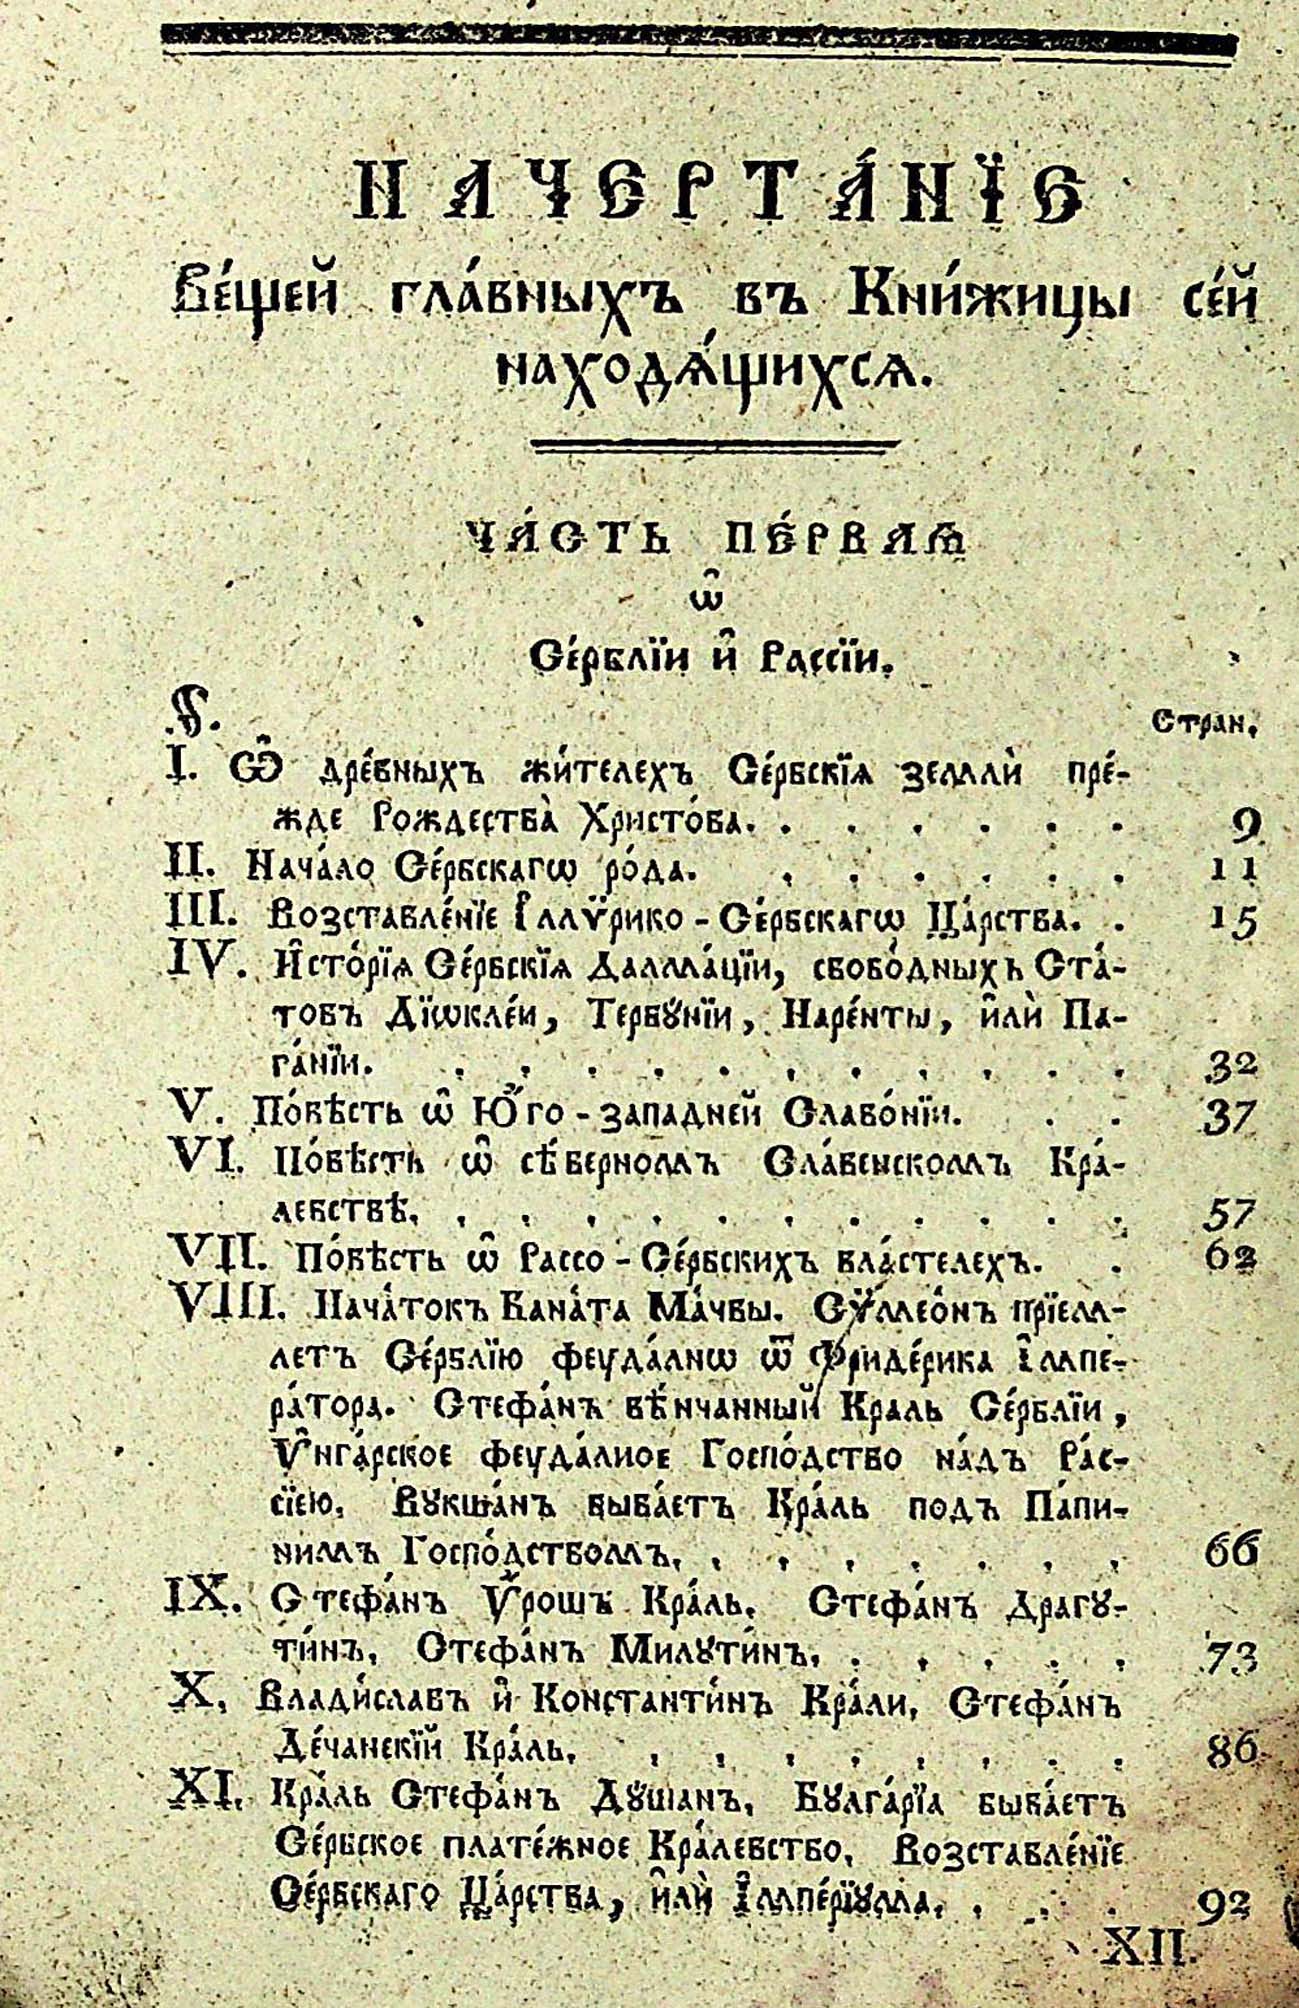 НАЧЕРТА́НЇЕ
Ве́щей гла́вныхъ въ Кни́жицы се́й
находѧ́щихсѧ.
ЧА́СТЬ ПЕ́РВАꙖ
ѡ҆̑
Се́рблїи и҆̑ Рассїи.
§.
Стран.
I. Ѽ дре́вныхъ жи́телехъ Се́рбскїѧ земли̑ пре́-
жде Рождества̀ Христо́ва. . . . . . . 9
II. Нача́ло Се́рбскагѡ ро́да. . . . . . . 11
III. Возставле́нїе Іллѷрико-Се́рбскагѡ Ца́рства. . 15
IV. И҆сто́рїѧ Се́рбскїѧ Далма́цїи, свобо́дныхъ Ста́-
товъ Дїѡкле́и, Тербꙋнїи, Наре́нты, и҆лѝ Па-
га́нїи. . . . . . . . . . . . 32
V. По́вѣсть ѡ҆̑ Ю҆́го-западней Славо́нїи. . . 37
VI. По́вѣсть ѡ҆̑ сѣ́верномъ Сла́венскомъ Кра́-
левствѣ. . . . . . . . . . . . 57
VII. По́вѣсть ѡ҆̑ Рассо-Се́рбскихъ вла́стелехъ. . 62
VIII. Нача́токъ Бана́та Ма́чвы. Сѷмео́нъ прїем-
летъ Се́рблїю феуда́лнѡ ѿ Фриде́рика І҆мпе-
ра́тора. Стефа́нъ вѣ́нчанный Краль Се́рблїи,
Ѵ҆нга́рское феуда́лное Госпо́дство на́дъ Ра́с-
сїею. Вꙋкша́нъ быва́етъ Кра́ль подъ Па́пи-
нимъ Госпо́дствомъ. . . . . . . . 66
IX. Стефа́нъ Ѵ́рошъ Кра́ль. Стефа́нъ Драгꙋ-
ти́нъ. Стефа́нъ Милꙋти́нъ. . . . . . 73
X. Влади́славъ и҆̑ Константи́нъ Кра́ли. Стефа́нъ
Де́чанскїй Кра́ль. . . . . . . . . 86
XI. Кра́ль Стефа́нъ Дꙋ́шанъ. Бꙋлга́рїа быва́етъ
Се́рбское плате́жное Кра́левство. Возставле́нїе
Се́рбскаго Ца́рства, и҆лѝ І҆мпе́рїꙋма. . . . 92
XII.